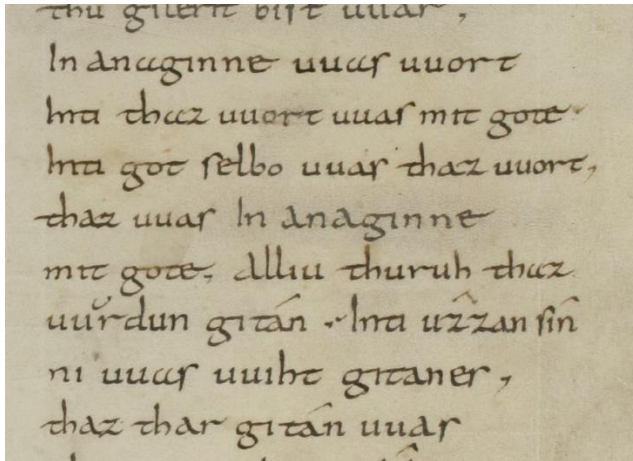 thu giuerit bist uuar,
In anaginne uuas uuort
Inti thaz uuort uuas mit gote.
Inti got selbo uuas thaz uuort,
thaz uuas In anaginne
mit gote, Alliu thuruh thaz
uuŭrdun gitán. Inti ûzzan sîn
ni uuas uuiht gitanes,
thaz thar gitán uuas